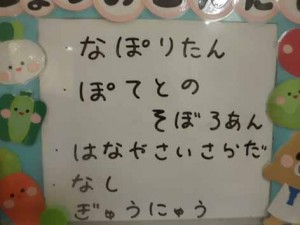 なぽりたん
ぽてとの
そぼろあん
はなやさいさらだ
なし
ぎゅうにゅう